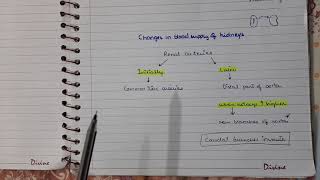 Changes in blood supply of kidneys
Renal arteries
Initially
Later
Common iliac arteries
Distal part of aorta
when kidneys ↑ higher
new branches of aorta
Caudal branches involute
Divine
Divine